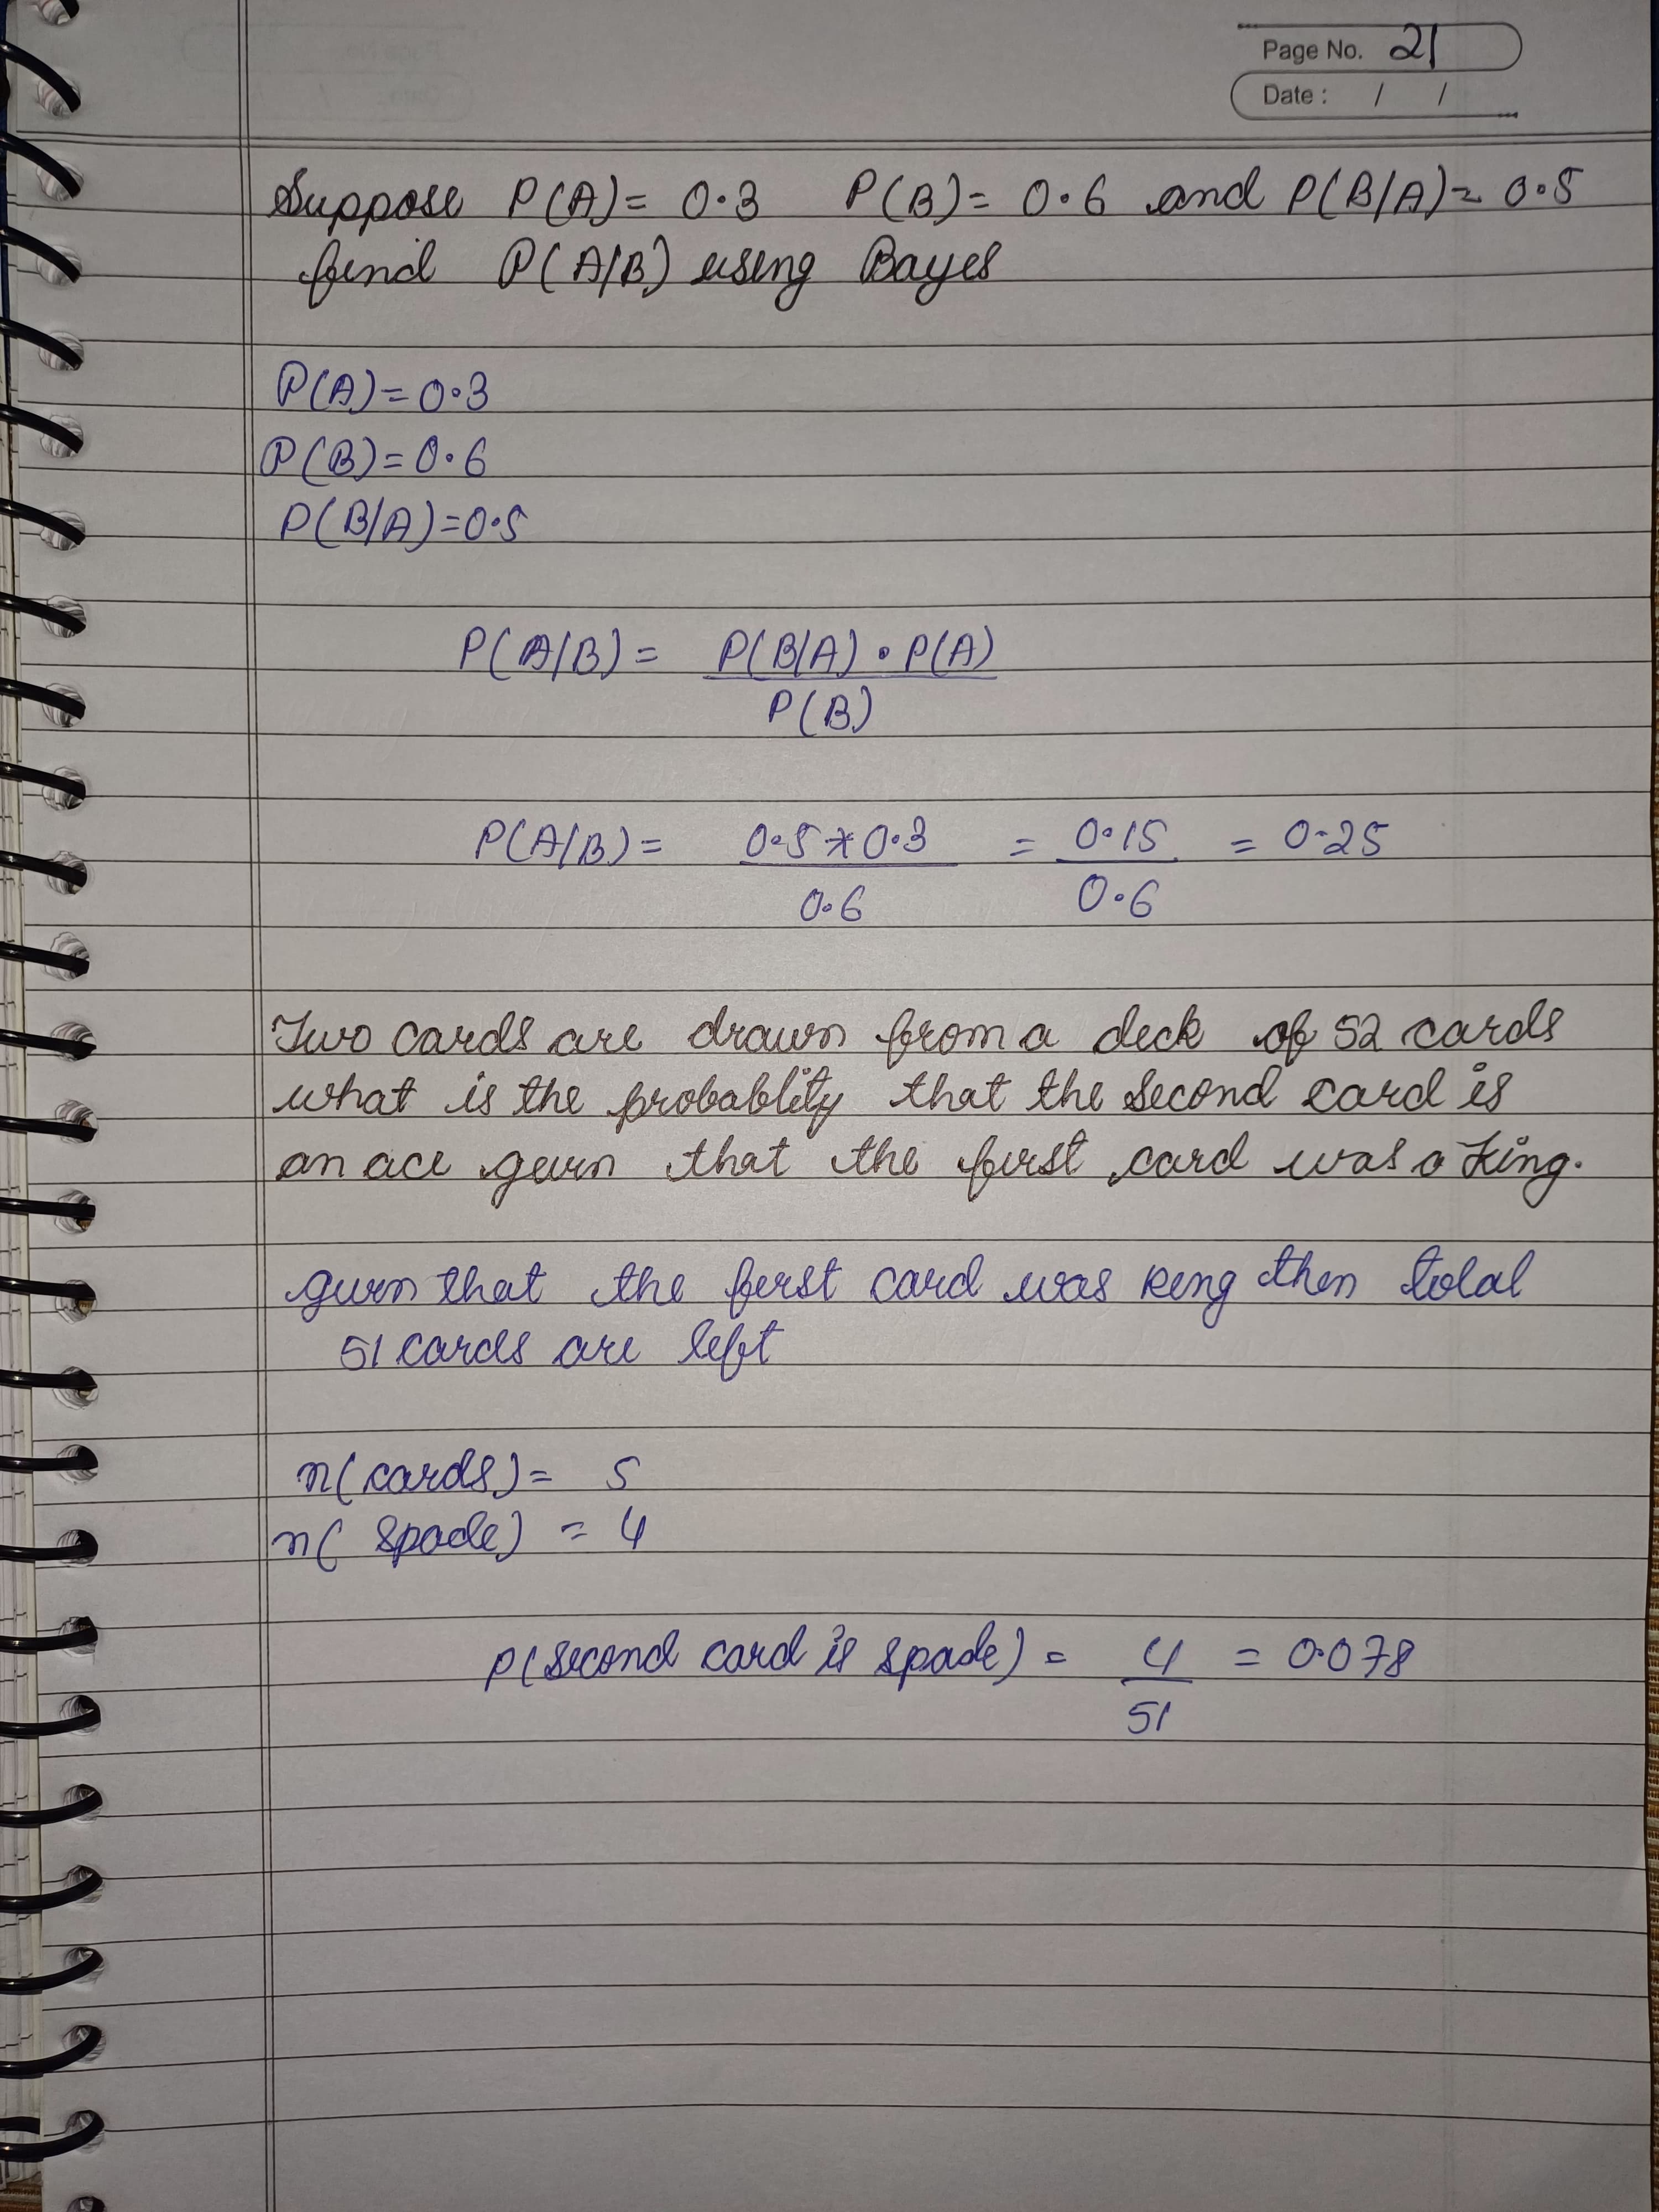 Page No. 21
Date : / /
Suppose P(A) = 0.3 P(B) = 0.6 and P(B/A) = 0.5
find P(A/B) using Bayes
P(A) = 0.3
P(B) = 0.6
P(B/A) = 0.5
P(A/B) = P(B/A) • P(A)
P(B)
P(A/B) = 0.5 * 0.3 = 0.15 = 0.25
0.6 0.6
Two cards are drawn from a deck of 52 cards
what is the probablity that the second card is
an ace given that the first card was a King.
given that the first card was king then total
51 cards are left
n(cards) = 5
n( spade) = 4
P(second card is spade) = 4 = 0.078
51